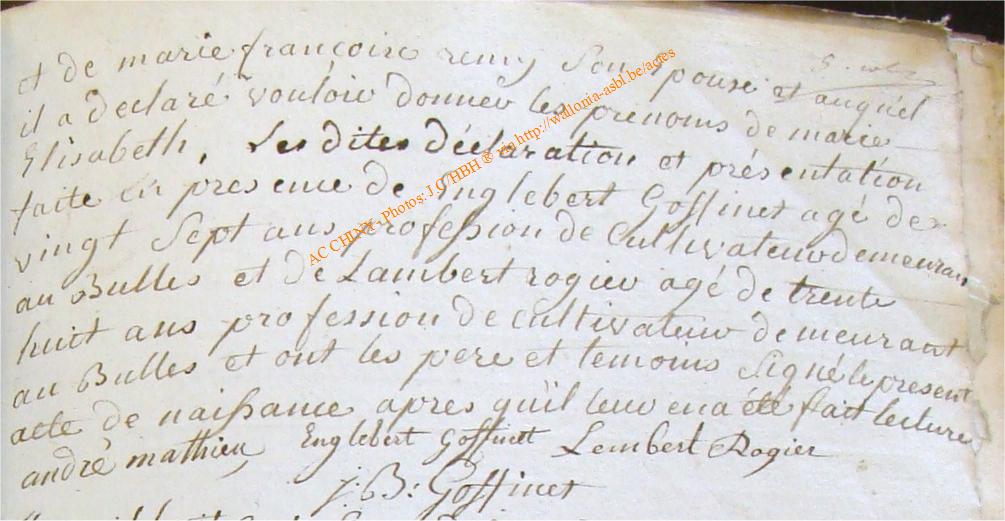 et de marie françoise remy Son Epouse et auquel
il a declaré vouloir donner les prenoms de marie
Elisabeth, Les dites déclaration et présentation
faite en presence de Englebert Goffinet agé de
vingt Sept ans profession de Cultivateur demeurant
au Bulles et de Lambert rogier agé de trente
huit ans profession de cultivateur demeurant
au Bulles et ont les pere et temoins Signé le present
acte de naissance apres qu'il leur en a été fait lecture
andré mathieu Englebert Goffinett Lembert Rogier
j: B: Goffinet
AC CHINY - Photos: J.C/HBH ® via http://wallonia-asbl.be/actes